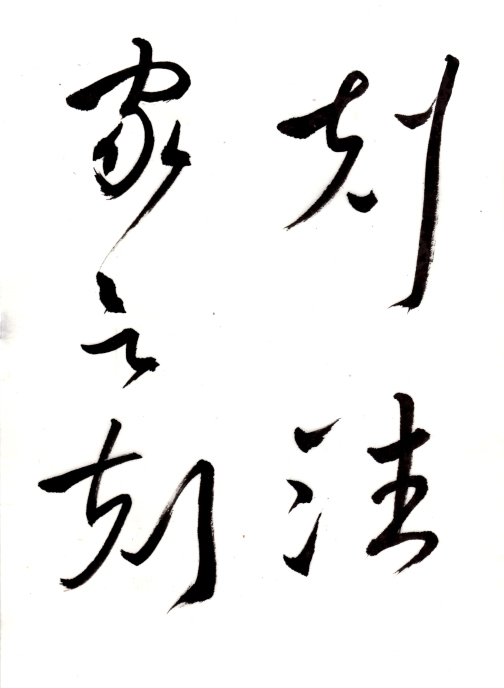 刻法
家之刻